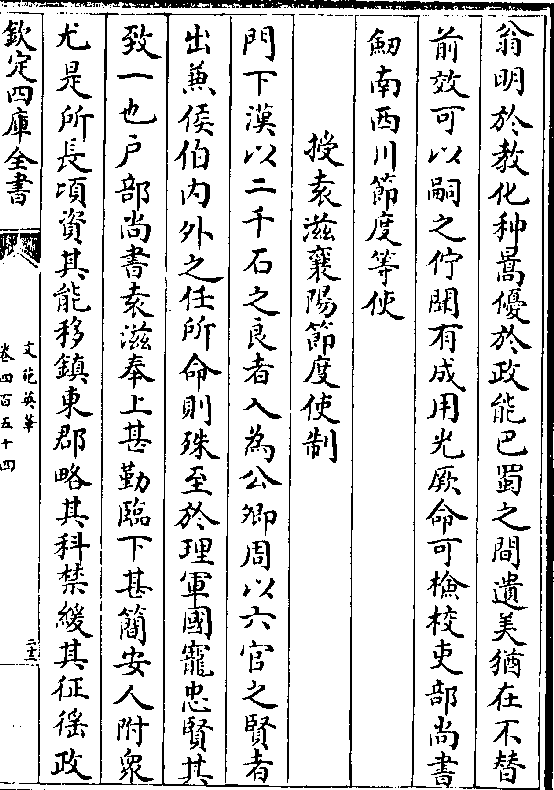 翁明於教化种暠優於政能巴蜀之間遺美猶在不替
前效可以嗣之佇聞有成用光厥命可檢校吏部尚書
劒南西川節度等使
授袁滋襄陽節度使制
門下漢以二千石之良者入為公卿周以六官之賢者
出兼侯伯内外之任所命則殊至於理軍國寵忠賢其
致一也户部尚書袁滋奉上甚勤臨下甚簡安人附衆
尤是所長項資其能移鎮東郡略其科禁緩其征徭政
欽定四庫全書
文苑英華
卷四百五十四
二十三